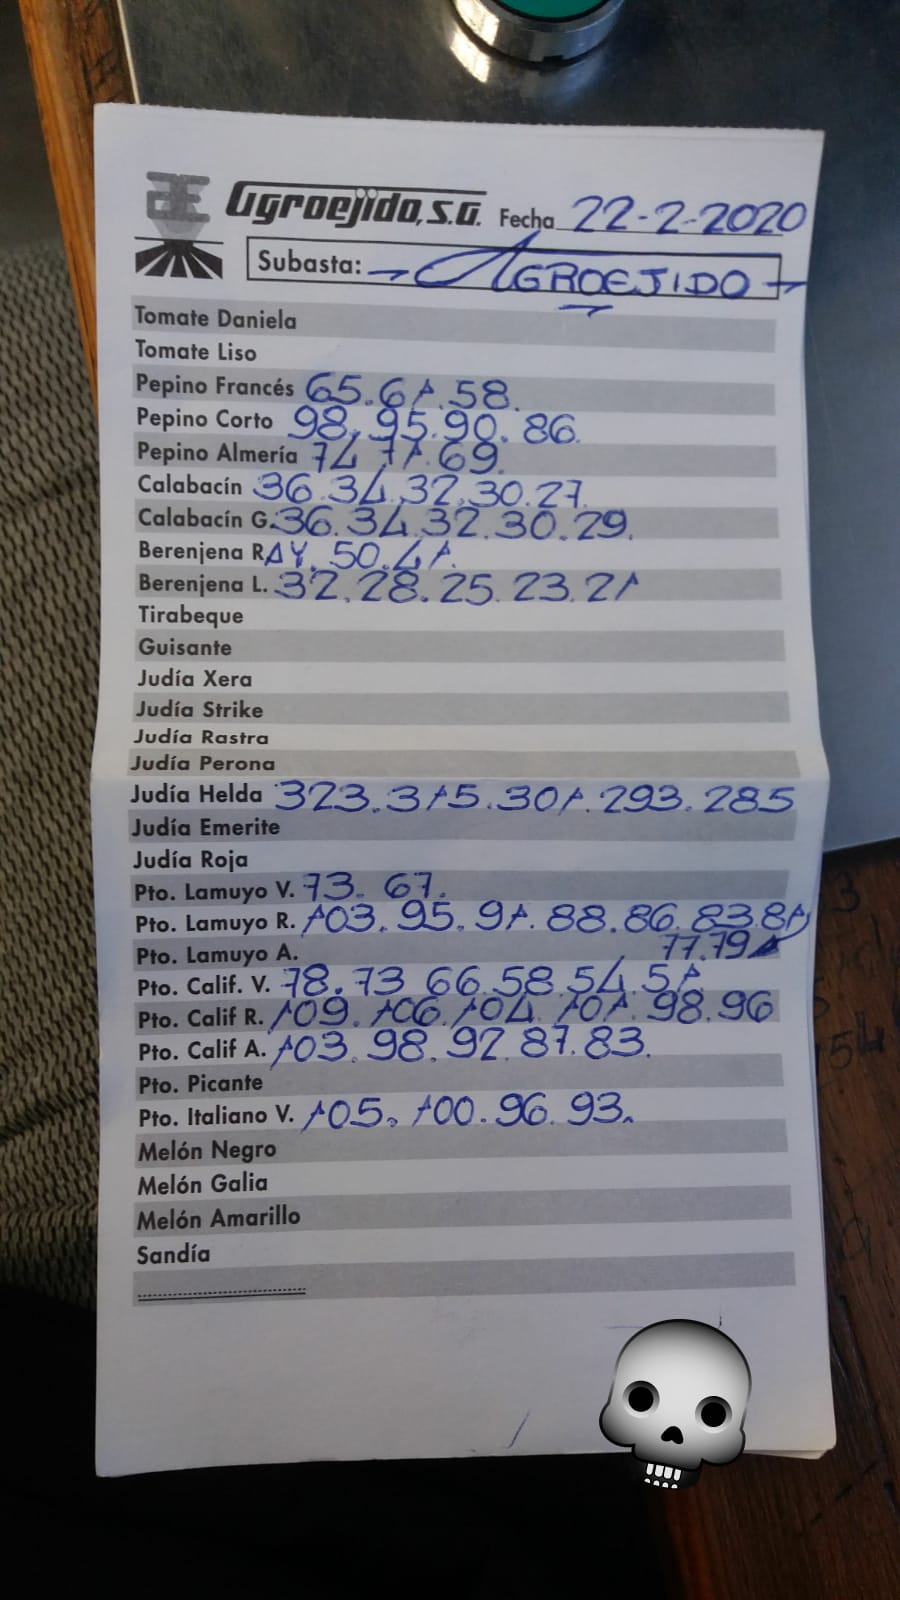 Agroejido, S.A. Fecha 22-2-2020
Subasta: AGROEJIDO
Tomate Daniela
Tomate Liso
Pepino Francés 65.61.58.
Pepino Corto 98.95.90.86.
Pepino Almería 74.71.69.
Calabacín 36.34.32.30.27.
Calabacín G. 36.34.32.30.29.
Berenjena RAY. 50.41.
Berenjena L. 32.28.25.23.21
Tirabeque
Guisante
Judía Xera
Judía Strike
Judía Rastra
Judía Perona
Judía Helda 323.315.301.293.285
Judía Emerite
Judía Roja
Pto. Lamuyo V. 73. 67.
Pto. Lamuyo R. 103.95.91.88.86.83.81
Pto. Lamuyo A. 77.79
Pto. Calif. V. 78.73 66.58.54.51.
Pto. Calif R. 109.106.104.101.98.96
Pto. Calif A. 103.98.92.87.83.
Pto. Picante
Pto. Italiano V. 105.100.96.93.
Melón Negro
Melón Galia
Melón Amarillo
Sandía